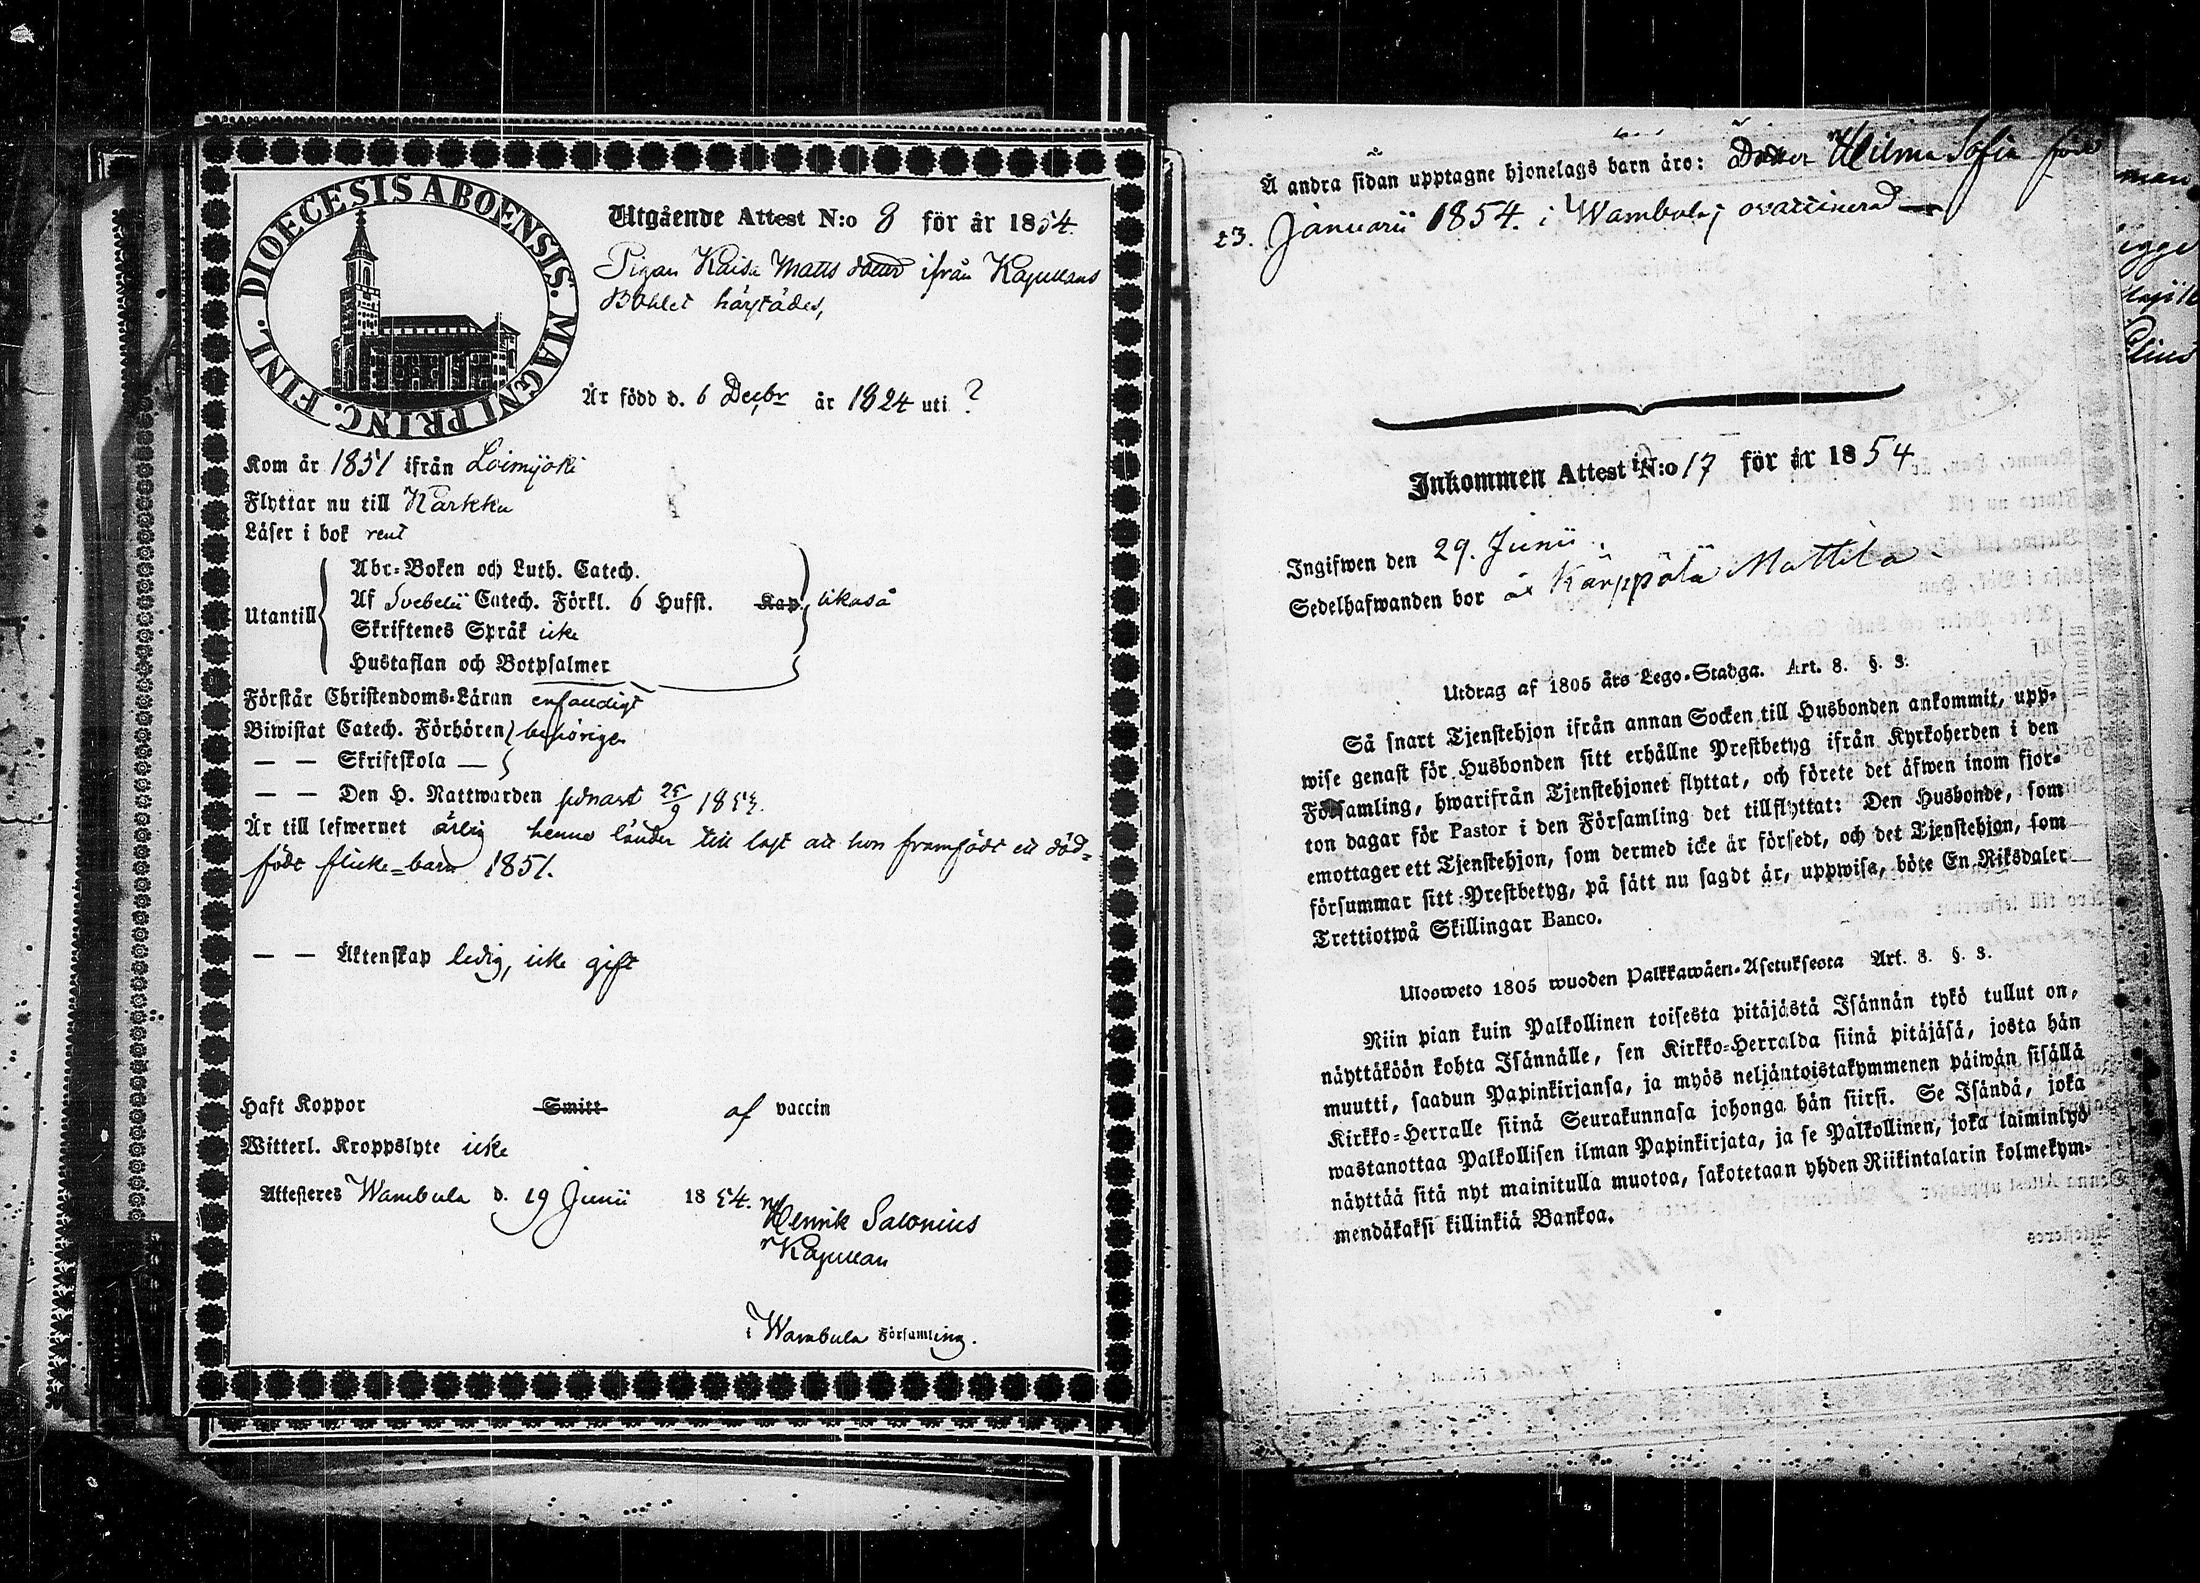 DIOECESIS ABOENSIS. MAGNI PRINC. FINL.
Utgående Attest N:o 8 för år 1854.
Pigan Kaisa Matts dotter ifrån Kapellans
Bohlet härstädes,
Är född d. 6 Decbr år 1824 uti ?
Kom år 1851 ifrån Loimijoki
Flyttar nu till Karkku
Läser i bok rent
Utantill
Abc-Boken och Luth. Catech.
Af Svebelii Catech. Förkl. 6 Hufst. Kap. likaså
Skriftenes Språk icke
Hustaflan och Botpsalmer
Förstår Christendoms-Läran enfaldigt
Biwistat Catech. Förhören behörigen
— — Skriftskola —
— — Den H. Nattwarden senast 25/9 1853.
Är till lefwernet ärlig henne länder till last att hon framfödt ett död=
födt flicke=barn 1851.
— — Äktenskap ledig, icke gift
Haft Koppor Smitt af vaccin
Witterl. Kroppslyte icke
Attesteres Wambula d. 19 Junii 1854.
Henrik Salonius
Kapellan
i Wambula Församling.
Å andra sidan upptagne hjonelags barn äro: Dotter Hilma Sofia född
23. Januarii 1854. i Wambula, ovaccinerad —
Inkommen Attest N:o 17 för år 1854
Ingifwen den 29. Junii.
Sedelhafwanden bor å Kärppälä Mattila
Utdrag af 1805 års Lego-Stadga. Art. 8. §. 3.
Så snart Tjenstehjon ifrån annan Socken till Husbonden ankommit, upp-
wise genast för Husbonden sitt erhållne Prestbetyg ifrån Kyrkoherden i den
Församling, hwarifrån Tjenstehjonet flyttat, och förete det äfwen inom fjor-
ton dagar för Pastor i den Församling det tillflyttat: Den Husbonde, som
emottager ett Tjenstehjon, som dermed icke är försedt, och det Tjenstehjon, som
försummar sitt Prestbetyg, på sätt nu sagdt är, uppwisa, böte En Riksdaler
Trettiotwå Skillingar Banco.
Ulosweto 1805 wuoden Palkkawäen-Asetuksesta Art. 8. §. 3.
Niin pian kuin Palkollinen toisesta pitäjästä Isännän tykö tullut on,
näyttäköön kohta Isännälle, sen Kirkko-Herralda siinä pitäjäsä, josta hän
muutti, saadun Papinkirjansa, ja myös neljäntoistakymmenen päiwän sisällä
Kirkko-Herralle siinä Seurakunnasa johonga hän siirsi. Se Isändä, joka
wastanottaa Palkollisen ilman Papinkirjata, ja se Palkollinen, joka laiminlyö
näyttää sitä nyt mainitulla muotoa, sakotetaan yhden Riikintalarin kolmekym-
mendäkaksi killinkiä Bankoa.